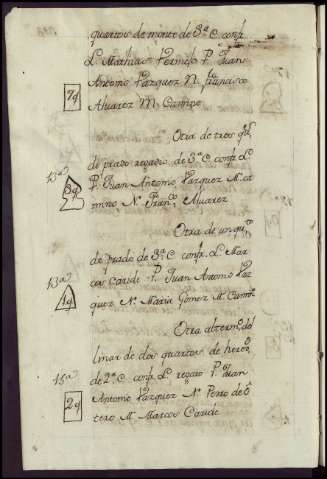 quartos de monte de 3.ª C. confr.
L. Mathias Vermejo P. Juan
Antonio Vazquez N. Francisco
7q
Alvarez M. Campo
Otra de tres q.s
de prado regadio de 3.ª C. confr. L.
13.ª
3q
P. Juan Antonio Vazquez M. ca
mino N. Fran.co Alvarez
Otra de un q.to
de prado de 3.ª C. confr. L. Mar
13.ª
cos Caude P. Juan Antonio Vaz
1q
quez N. Maria Gomez M. Camn.o
Otra al term.o do
lmar de dos quartos de
15.ª
de 2.ª C. confr. L. regato P. Juan
2q
Antonio Vazquez N. Pento de O
tero M. Marcos Caude